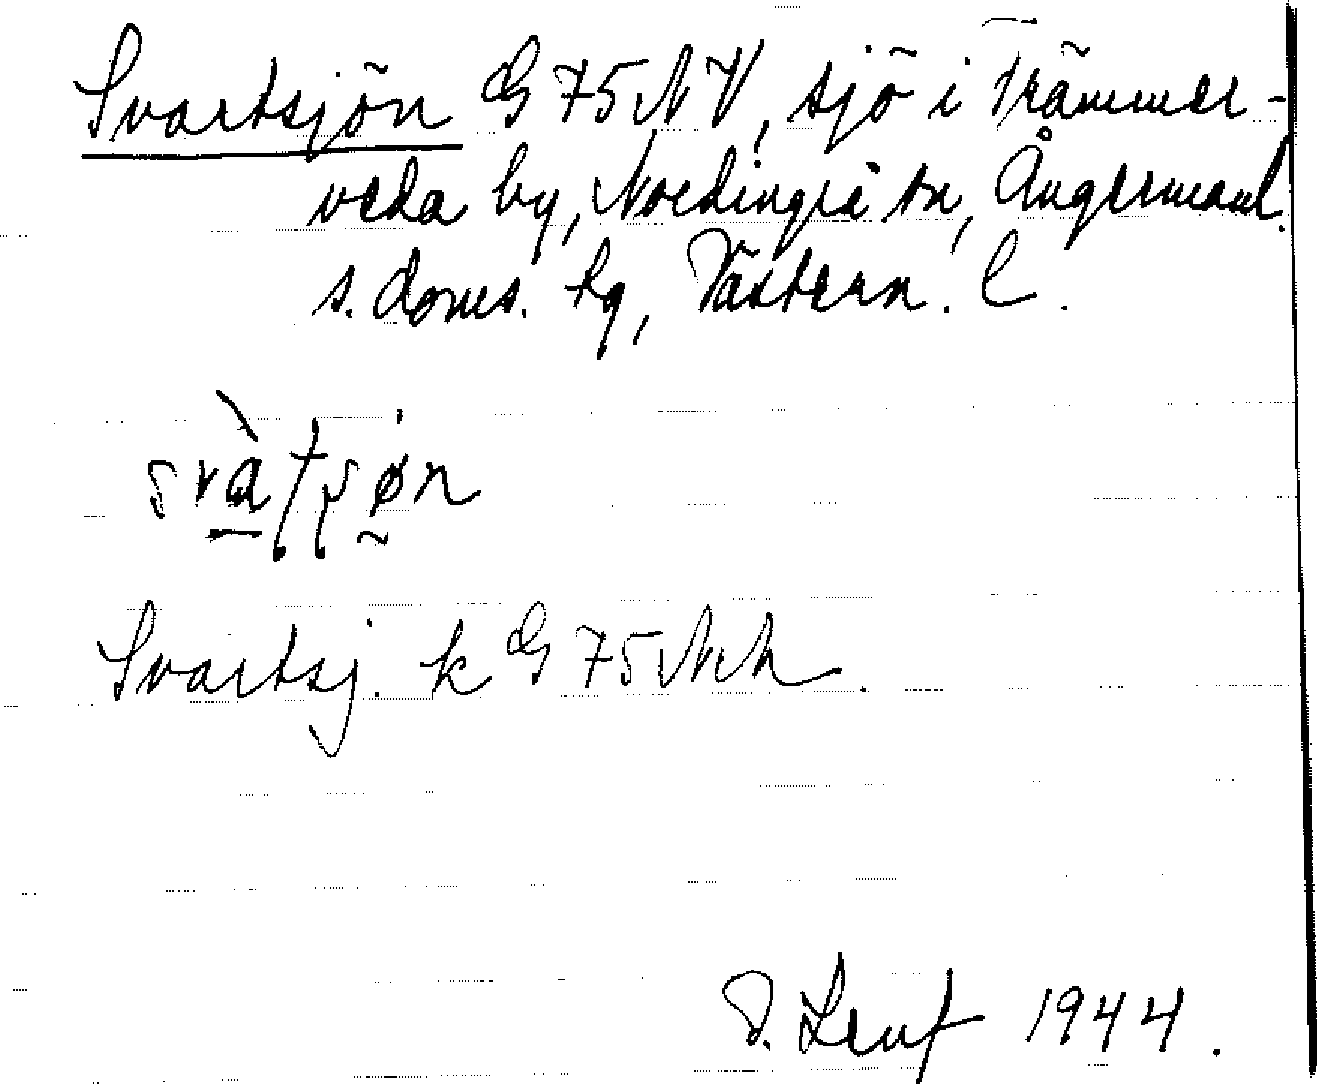 Svartsjön G 75 NV, sjö i Främmer-
veda by, Nordingrå sn, Ångermanl.
s. doms. tg, Västern. l.
Svartsj. k G 75 Nh.
1944.